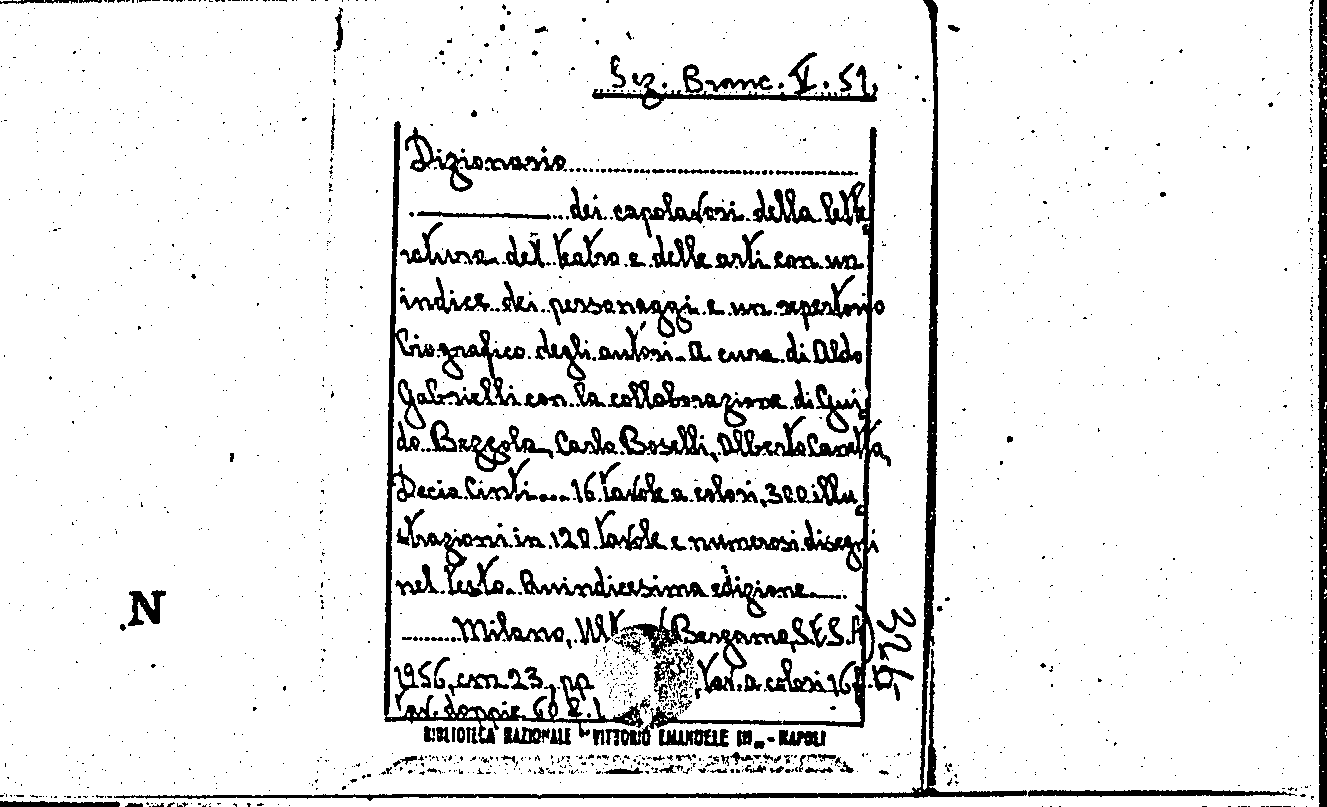 Sez. Branc. V. 51.
Dizionario
dei capolavori della lette
ratura del teatro e delle arti con un
indice dei personaggi e un repertorio
biografico degli autori. A cura di Aldo
Gabrielli con la collaborazione di Gui-
do Bezzola, Carlo Boselli, Alberto Canetta,
Decio Cinti... 16 tavole a colori, 300 illu
strazioni in 120 tavole e numerosi disegni
nel testo. Quindicesima edizione
Milano, (Bergamo, S.E.S.A)
1956, cm 23, pp tav. a colori 16
tav. doppie 60
BIBLIOTECA NAZIONALE "VITTORIO EMANUELE III" - NAPOLI
N